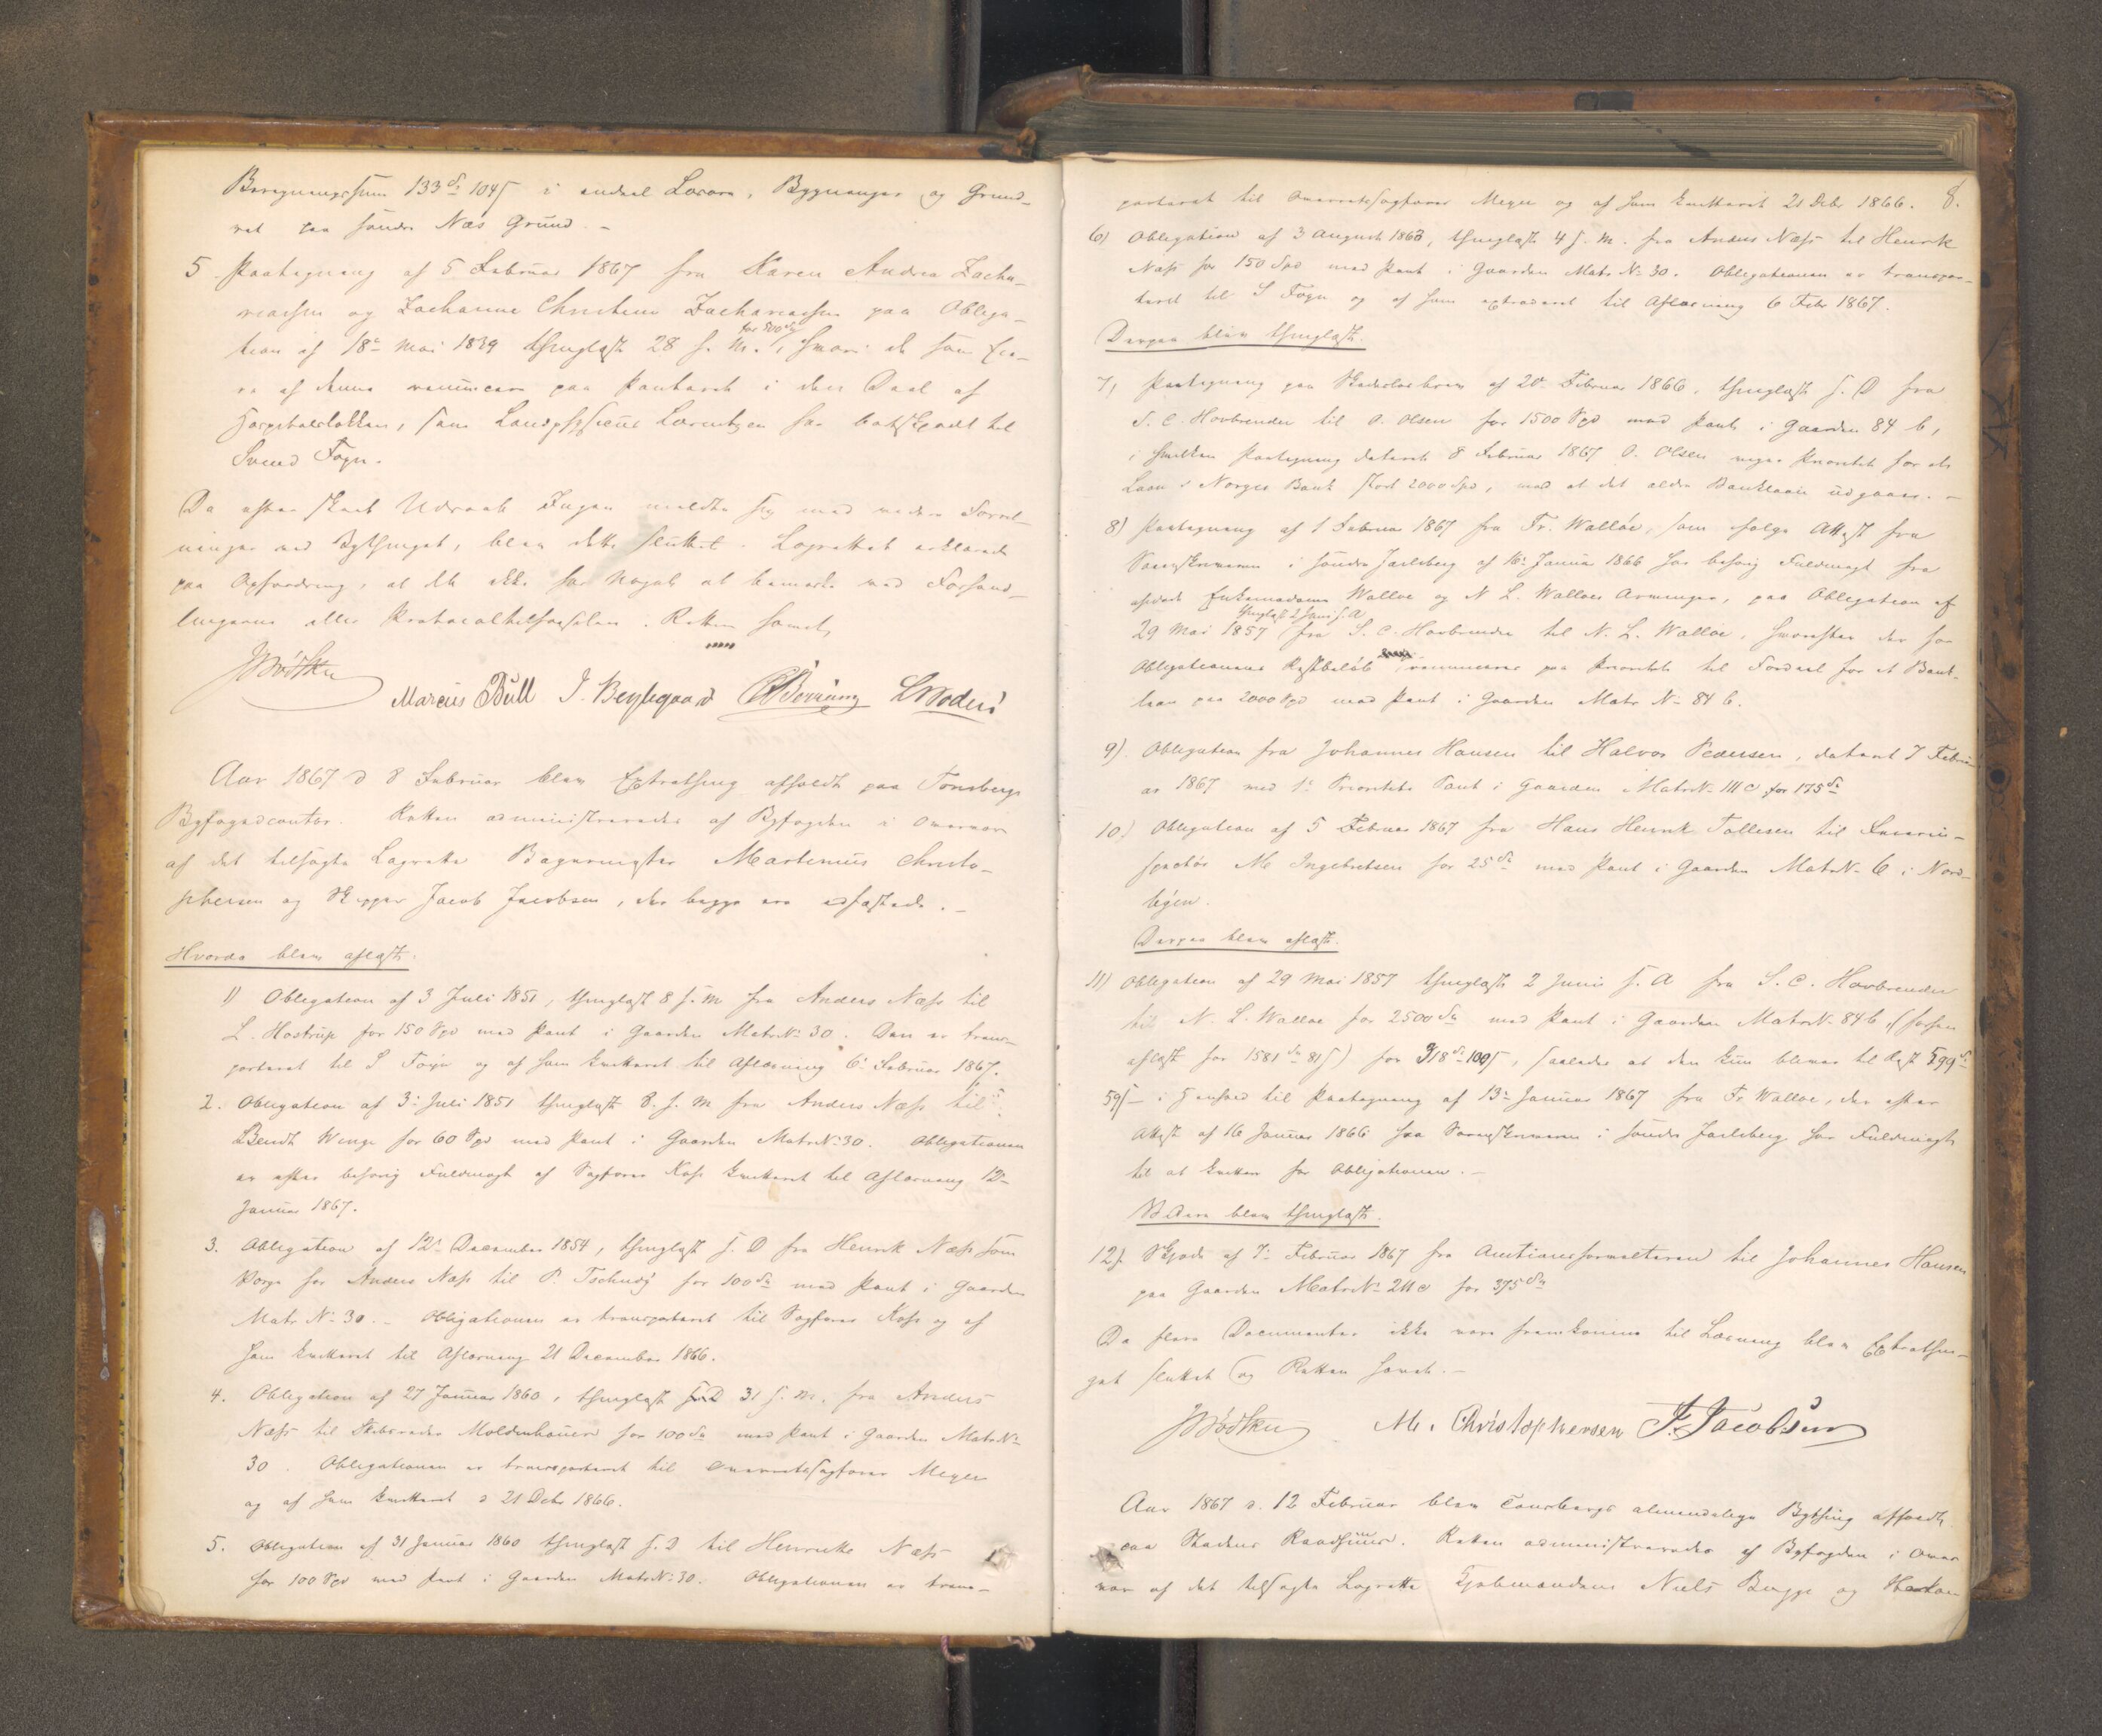 Beregningssum 133 Sp 104 ſ i endeel Løsøre, Bygninger og Grund-
ret paa søndre Næs Grund. -
5. Paategning af 5 Februar 1867 fra Karen Andrea Zacha-
riassen og Zacharine Christine Zachariassen paa Obliga-
tion af 18de Mai 1839 thinglæst 28 s. M. for 500 Spd, hvori de som Eie-
re af denne renuncere paa Panteret i den Deel af
Hospitalsløkken, som Lorentzen har bortskjødet til
Svend Foyn.
Da efter skeet Udraab Ingen meldte sig med videre Forret-
ninger ved Bythinget, blev dette sluttet. Lagrettet erklærede
paa Opfordring, at de ikke har Noget at bemærke ved Forhand-
lingerne eller Protocoltilførselen. Retten hævet,
Marcus Bull J. Bryhegaard
Aar 1867 d 8 Februar blev Extrathing afholdt paa Tønsbergs
Byfogedcontor. Retten administreredes af Byfogden i Overvær
af det tilsagte Lagrette Bagermester Martinius Christo-
phersen og Skipper Jacob Jacobsen, der begge ere edfæstede. -
Hvorda blev aflæst.
1) Obligation af 3 Juli 1851, thinglæst 8 s. M. fra Anders Næss til
L. Hostrup for 150 Spd med Pant i Gaarden Matr. No 30. Den er trans-
porteret til S Foyn og af ham kvitteret til Aflæsning 6. Februar 1867.
2. Obligation af 3. Juli 1851 thinglæst 8. s. M fra Anders Næss til
Bendt Wenge for 60 Spd med Pant i Gaarden Matr. No 30. Obligationen
er efter behørig Fuldmagt af Sagfører Koss kvitteret til Aflæsning 12
Januar 1867.
3. Obligation af 12 December 1854, thinglæst s. D fra Henrik Næss som
Værge for Anders Næss til P. Tschudy for 100 Spd med Pant i Gaarden
Matr. No 30. - Obligationen er transporteret til Sagfører Koss og af
ham kvitteret til Aflæsning 21 December 1866.
4. Obligation af 27 Januar 1860, thinglæst 31 s. M. fra Anders
Næss til Skibsreder Moldenhauer for 100 Spd med Pant i Gaarden Matr. No
30. Obligationen er transporteret til Overretssagfører Meyer
og af ham kvitteret d 21 Decbr 1866.
5. Obligation af 31 Januar 1860 thinglæst s. D til Henriette Næss
for 100 Spd med Pant i Gaarden Matr. No 30. Obligationen er trans-
8.
porteret til Overretssagfører Meyer og af ham kvitteret 21 Debr 1866.
6) Obligation af 3 August 1863, thinglæst 4 s. M. fra Anders Næss til Henrik
Næss for 150 Spd med Pant i Gaarden Matr No 30. Obligationen er transpor-
teret til S Foyn og af ham extraderet til Aflæsning 6 Febr 1867.
Derpaa blev thinglæst.
7) Paategning paa Skadesløsbrev af 20 Februar 1866, thinglæst s. D fra
S. C. Hovbrender til O. Olsen for 1500 Spd med Pant i Gaarden 84 b,
i hvilken Paategning dateret 8 Februar 1867 O. Olsen viger Prioritet for et
Laan i Norges Bank stort 2000 Spd, mod at det ældre Banklaan udgaaer. -
8) Paategning af 1 Februar 1867 fra Fr. Walløe, som ifølge Attest fra
Sorenskriveren i søndre Jarlsberg af 16 Januar 1866 har behørig Fuldmagt fra
afdøde Enkemadame Walløe og N. L. Walløes Arvinger, paa Obligation af
29 Mai 1857 thinglæst 2 Juni s. A. fra S. C. Hovbrender til N. L. Walløe, hvorefter der for
Obligationens Restbeløb renunceres paa Prioritet til Fordeel for et Bank-
laan paa 2000 Spd med Pant i Gaarden Matr No 84 b.
9). Obligation fra Johannes Hansen til Halvor Pedersen, dateret 7 Febru-
ar 1867 med 1ste Prioritets Pant i Gaarden Matr. No 111 c for 175 Spd
10.) Obligation af 5 Februar 1867 fra Hans Henrik Tollesen til
M Ingebretsen for 25 Spd med Pant i Gaarden Matr. No 6 i Nord-
byen.
Derpaa blev aflæst.
11) Obligation af 29 Mai 1857 thinglæst 2 Juni s. A fra S. C. Hovbrender
til N. L. Walløe for 2500 Spd med Pant i Gaarden Matr. No 84 b, (forhen
aflæst for 1581 Spd 81 ſ) for 318 Spd 100 ſ, saaledes at den kun bliver til Rest 599 Spd
59 ſ - i Henhold til Paategning af 13 Januar 1867 fra Fr. Walløe, der efter
Attest af 16 Januar 1866 fra Sorenskriveren i søndre Jarlsberg har Fuldmagt
til at kvittere for Obligationen. -
Videre blev thinglæst.
12). Skjøde af 7. Februar 1867 fra Auctionsforvalteren til Johannes Hansen
paa Gaarden Matr. No 211 c for 375 Spd
Da flere Documenter ikke vare fremkomne til Læsning blev Extrathin-
get sluttet og Retten hævet. -
M. Christophersen J. Jacobsen
Aar 1867 d. 12 Februar blev Tønsbergs almindelige Bything afholdt
paa Stadens Raadhuus. Retten administreredes af Byfogden i Over
vær af det tilsagte Lagrette Kjøbmændene Niels Bugge og Haakon